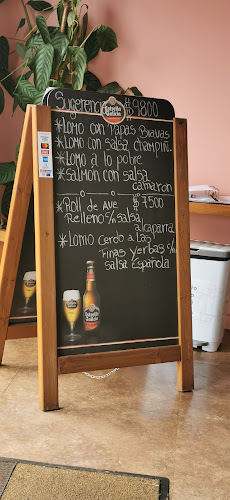 Sugerencia $9800
Estrella Galicia
*Lomo con Papas Bravas
*Lomo con salsa champiñ.
*Lomo a lo pobre
*Salmon con salsa
camaron
*Roll de Ave $7500
Relleno c/salsa
alcaparra
*Lomo Cerdo a Las
Finas yerbas c/n
salsa Española